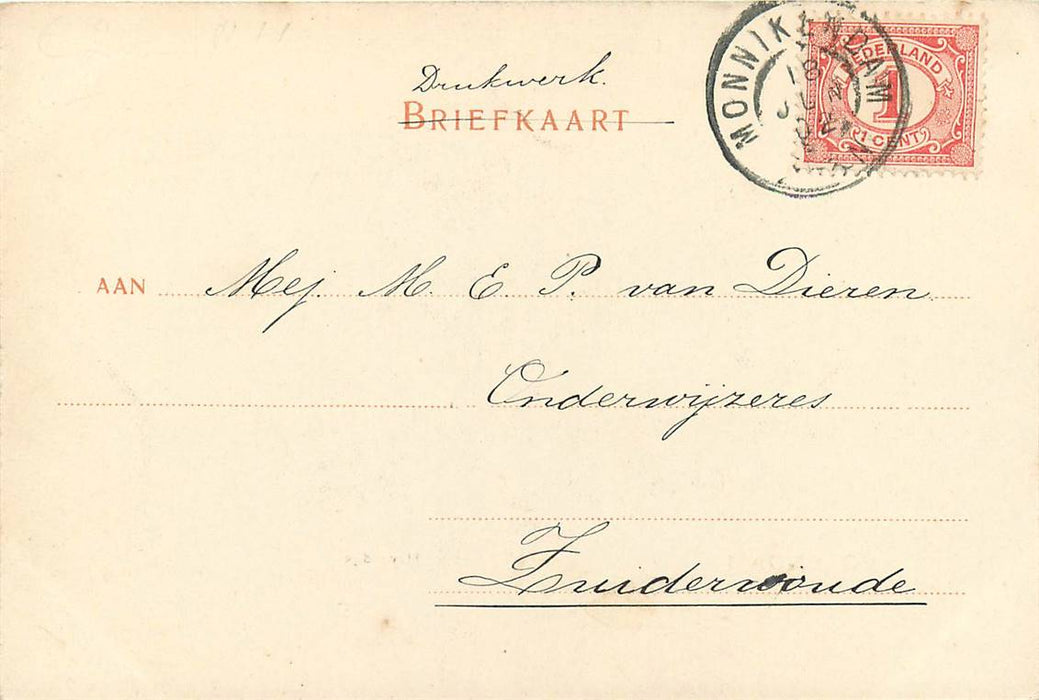 Drukwerk.
BRIEFKAART
MONNIKENDAM
18
JUN
02
NEDERLAND
1
1 CENT
AAN Mej. M. E. P. van Dieren
Onderwijzeres
Zuiderwoude